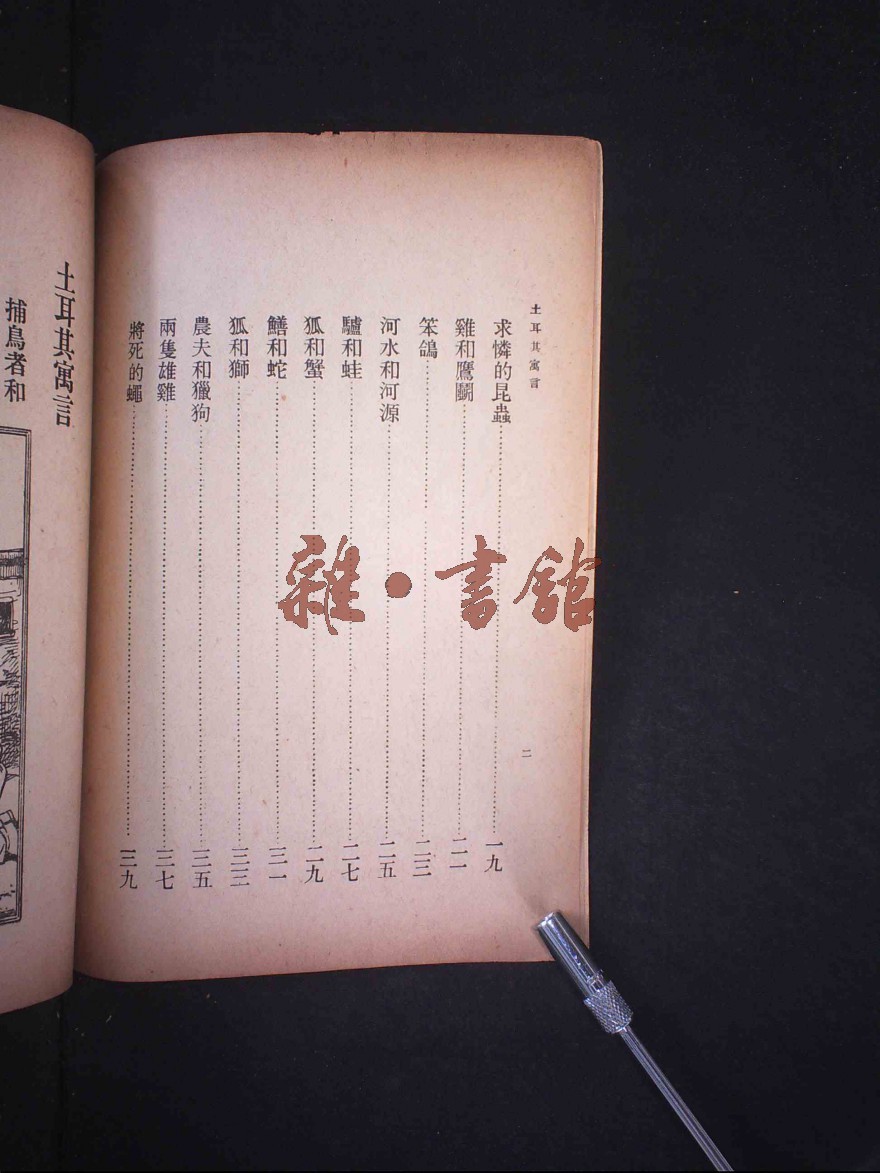 土耳其寓言
求憐的昆蟲⋯⋯一九
雞和鷹鬭⋯⋯二一
笨鴿⋯⋯二三
河水和河源⋯⋯二五
驢和蛙⋯⋯二七
狐和蟹⋯⋯二九
鱔和蛇⋯⋯三一
狐和獅⋯⋯三三
農夫和獵狗⋯⋯三五
兩隻雄雞⋯⋯三七
將死的蠅⋯⋯三九
二
土耳其寓言
捕鳥者和
雜·書館